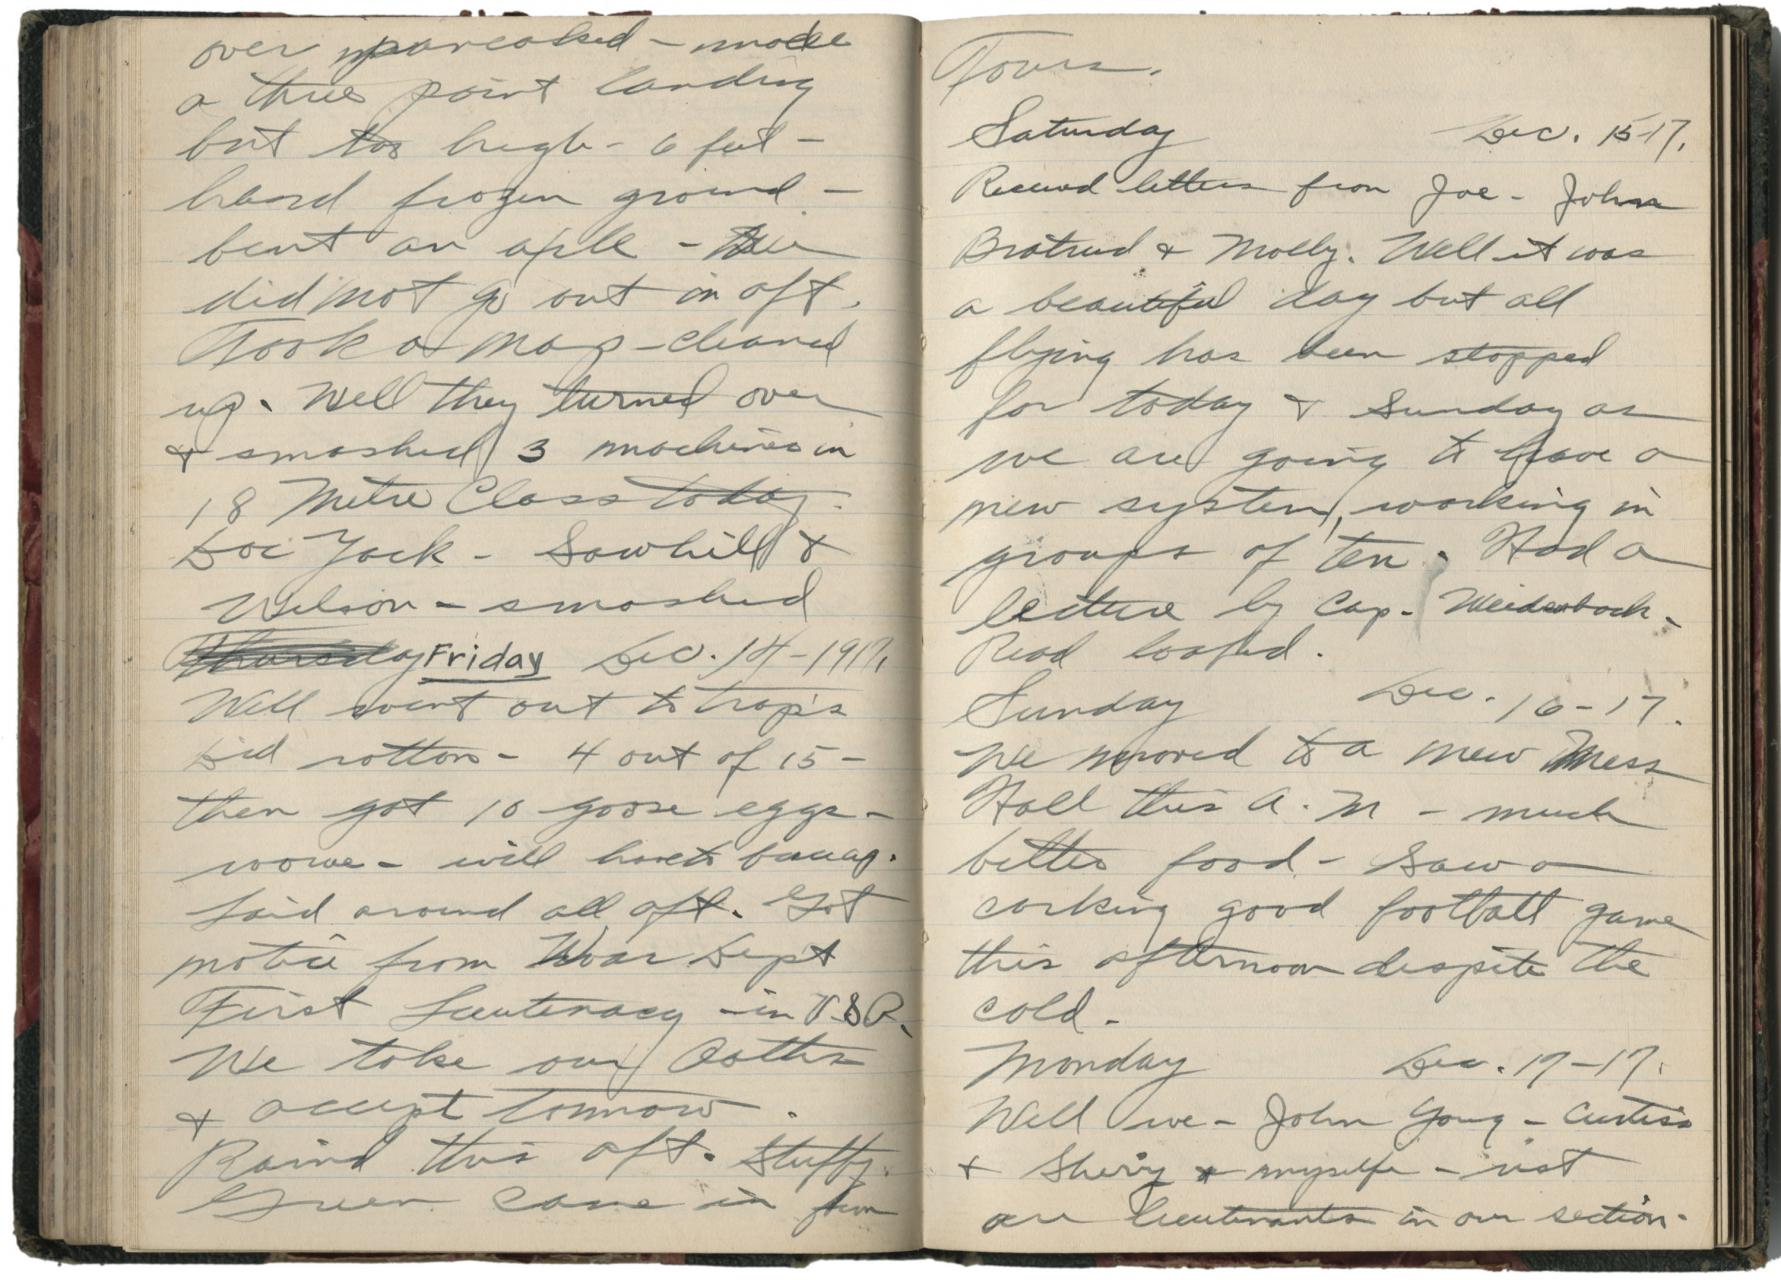 over uparcaked - made
a three point landing
but too high - 6 feet -
hard frozen ground -
bent an axle -
did not go out in aft.
Took a map - cleaned
up. Well they turned over
& smashed 3 machines in
18 Metre Class today.
Doc York - Sawhill &
Wilson - smashed
Thursday Friday Dec. 14 - 1917.
Well went out to traps
Did rotton - 4 out of 15 -
then got 10 goose eggs -
wowe - will have to
Laid around all aft. Got
notice from War Dept
First Lieutenacy - in
We take our Oaths
& accept tomrow.
Raind this aft. Stuffy
Green came in from
Tours.
Saturday Dec. 15-17.
Received letters from Joe - John
Bratrud & Molly. Well it was
a beautiful day but all
flying has been stopped
for today & Sunday as
we are going to have a
new system, working in
groups of ten. Had a
lecture by Cap. Weidenbach -
Read loafed.
Sunday Dec. 16-17.
We moved to a new Mess
Hall this A.M - much
better food - Saw a
corking good football game
this afternoon despite the
cold -
Monday Dec. 17-17.
Well we - John Young - Curtiss
& Sherry & myselfe -
are lieutenants in our section -